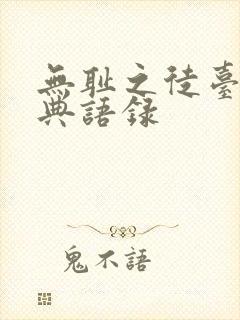 無耻之徒臺
典語錄
鬼不語